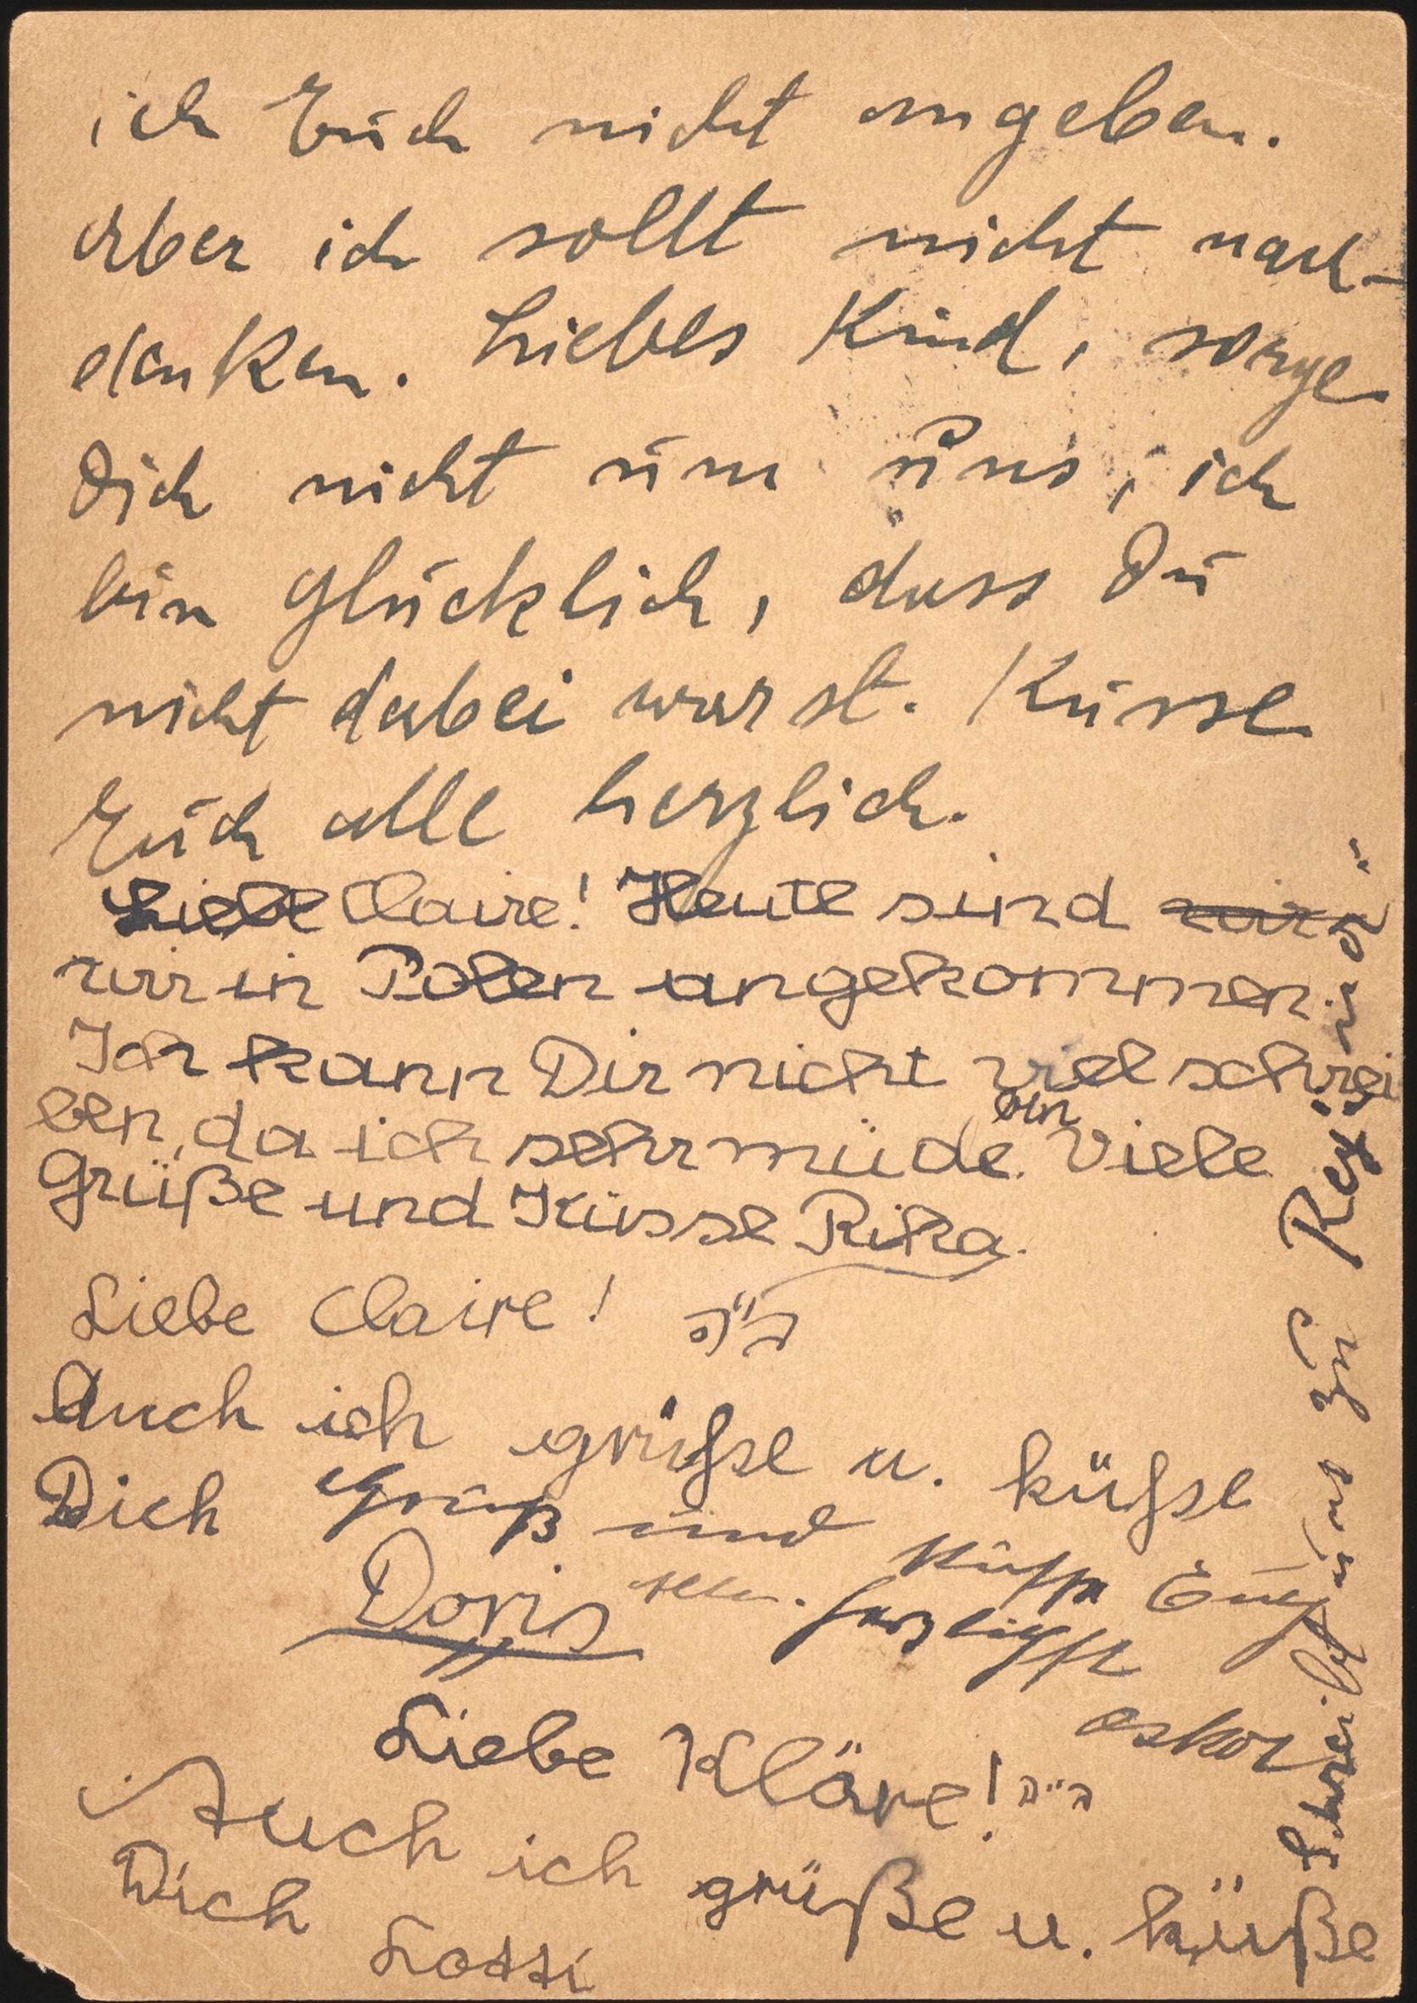 ich Euch nicht angeben.
Aber ich sollt nicht nach-
denken. Liebes Kind, sorge
Dich nicht um uns, ich
bin glücklich, dass Du
nicht dabei warst. Küsse
Euch alle herzlich.
Liebe Claire! Heute sind wir
wir in Polen angekommen.
Ich kann Dir nicht viel schrei
ben, da ich sehr müde bin. Viele
Grüße und Küsse Rika.
Liebe Claire!
Auch ich grüße u. küsse
Dich
Doris
Gruß und Küsse Euch
allen. herzlichst
Oskar
Liebe Kläre!
Auch ich grüße u. küße
Dich
Lotti
Schreibt uns zu